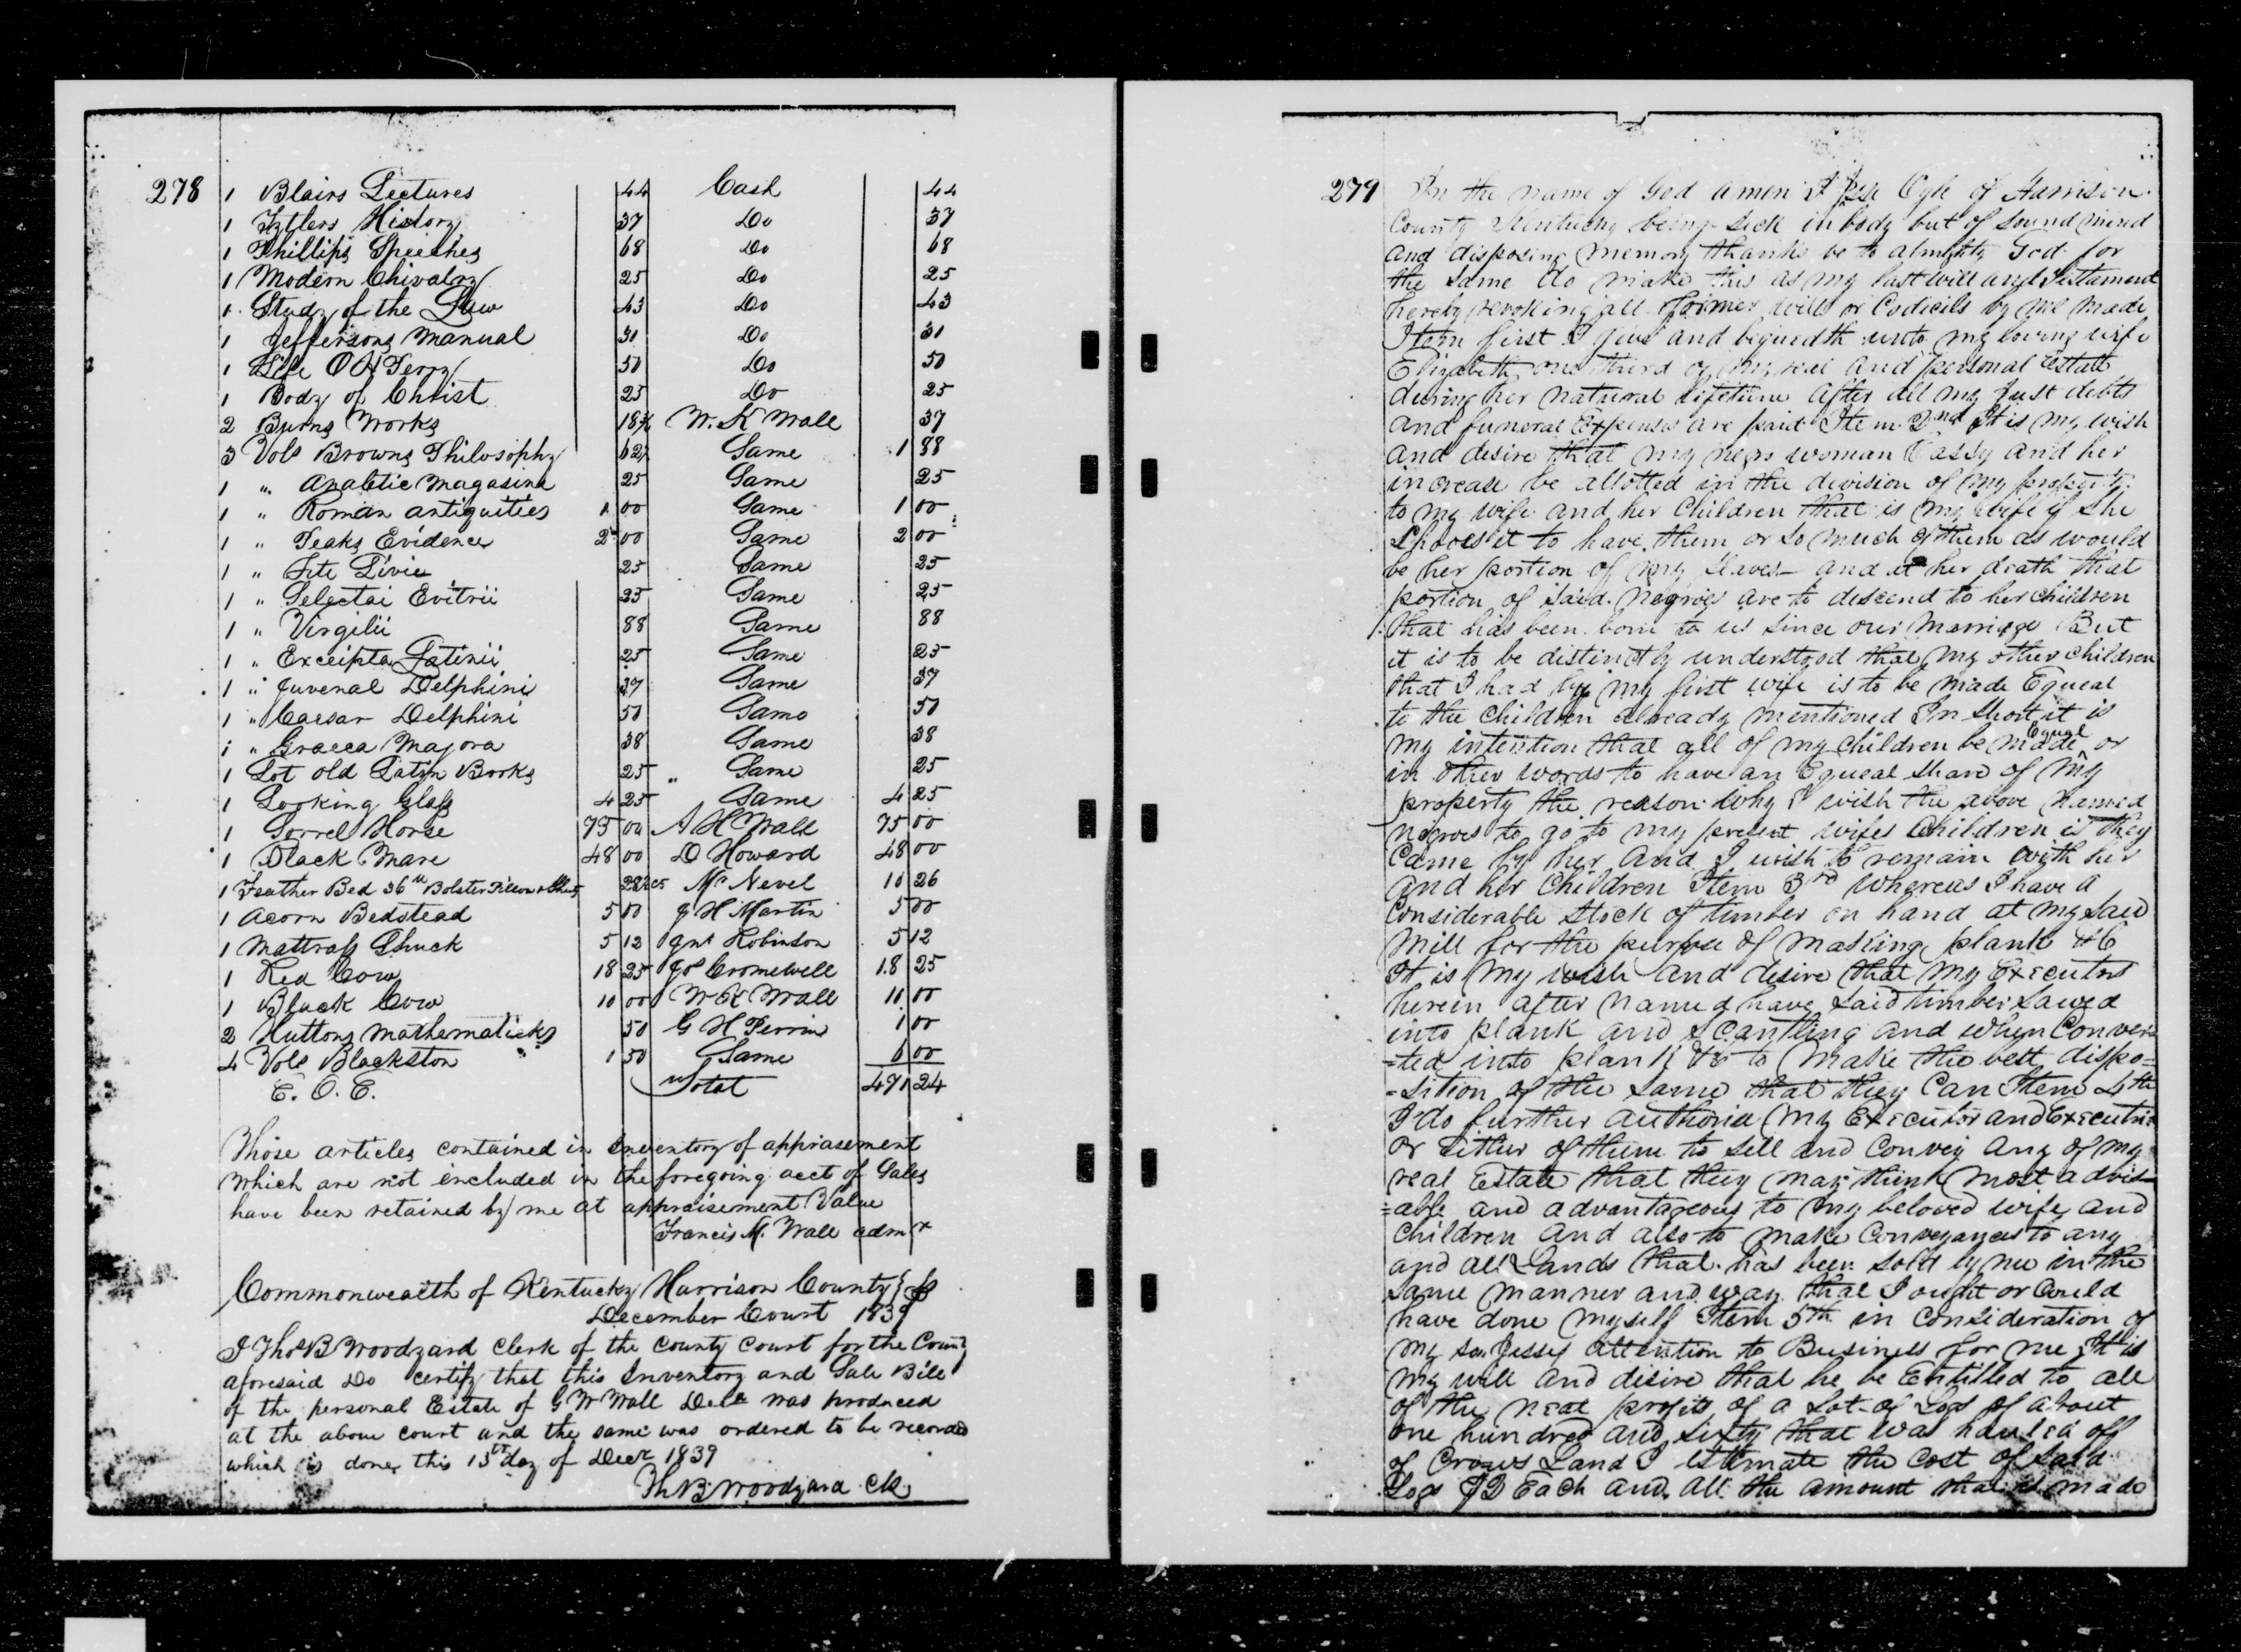 278
1 Blairs Lectures 44 Cash 44
1 Tytlers History 37 Do 37
1 Phillips Speeches 68 Do 68
1 Modern Chivalry 25 Do 25
1 Study of the Law 43 Do 43
1 Jeffersons Manual 31 Do 31
1 Life O H Perry 50 Do 50
1 Body of Christ 25 Do 25
2 Burns Works 18¾ W. K Wall 37
3 Vols Browns Philosophy 62½ Same 1 88
1 " Analetic Magasine 25 Same 25
1 " Roman antiquities 1 00 Same 1 00
1 " Peaks Evidence 2 00 Same 2 00
1 " Tite Livie 25 Same 25
1 " Selectai Evitrii 25 Same 25
1 " Virgilii 88 Same 88
1 " Excerpta Latinii 25 Same 25
1 " Juvenal Delphini 37 Same 37
1 " Caesar Delphini 50 Same 50
1 " Graeca Majora 38 Same 38
1 Lot old Latin Books 25 " Same 25
1 Looking Glass 4 25 Same 4 25
1 Sorrel Horse 75 00 A H Wall 75 00
1 Black Mare 48 00 D Howard 48 00
1 Feather Bed 36 lb Bolster Pillow & Sheets Mc Nevel 10 26
1 Acorn Bedstead 5 00 J H Martin 5 00
1 Mattrass Shuck 5 12 Jnt Robinson 5 12
1 Red Cow 18 25 Jos Cromwell 18 25
1 Black Cow 10 00 W K Wall 10 00
2 Huttons Mathematicks 50 G H Perrin 1 00
4 Vols Blackston 1 50 Same 6 00
E. O. E. Total 471 24
Those articles contained in Inventory of appriasement
which are not included in the foregoing acct of Sales
have been retained by me at appraisement Value
Francis M. Wall admrx
Commonwealth of Kentucky Harrison County } ss
December Court 1839
I Thos B Woodyard Clerk of the County Court for the County
aforesaid Do certify that this Inventory and Sale Bill
of the personal Estate of G W Wall Decd was produced
at the above court and the same was ordered to be recorded
which is done this 13th day of Decr 1839
Th B Woodyard Clk.
279
In the name of God amen I Jesse Ogle of Harrison
County Kentucky being sick in body but of sound mind
and disposing memory thanks be to almighty God for
the same do make this as my last will and Testament
hereby revoking all former wills or Codicils by me made
Item first I give and bequeath unto my loving wife
Elizabeth one third of my real and personal Estate
during her natural lifetime after all my just debts
and funeral Expenses are paid Item 2nd It is my wish
and desire that my negro woman Cassy and her
increase be allotted in the division of my property
to my wife and her Children that is my wife if she
Chooses it to have them or so much of them as would
be her portion of my slaves and at her death that
portion of said Negroes are to descend to her children
that has been born to us since our Marriage But
it is to be distinctly understood that my other children
that I had by my first wife is to be made Equeal
to the children already mentioned In short it is
my intention that all of my children be made Equal or
in other words to have an Equeal share of my
property the reason why I wish the above named
negroes to go to my present wifes Children is they
Came by her and I wish to remain with her
and her Children Item 3rd Whereas I have a
Considerable stock of timber on hand at my said
Mill for the purpose of making plank &c
It is my wish and desire that my Executors
herein after named have said timber sawed
into plank and scantling and when Conver
=ted into plank &c to make the best dispo=
=sition of the same that they Can Item 4th
I do further authorise my Executor and Executrix
or Either of them to sell and Convey any of my
real Estate that they may think most advis
=able and advantageous to my beloved wife and
Children and also to make Conveyances to any
and all Lands that has been sold by me in the
same manner and way that I ought or Could
have done myself Item 5th in Consideration of
my son Jesses attention to Business for me It is
my will and desire that he be Entitled to all
of the neat profits of a Lot of Logs of about
one hundred and sixty that was hauled off
of Crows Land I estimate the Cost of said
Logs Each and all the amount that is made